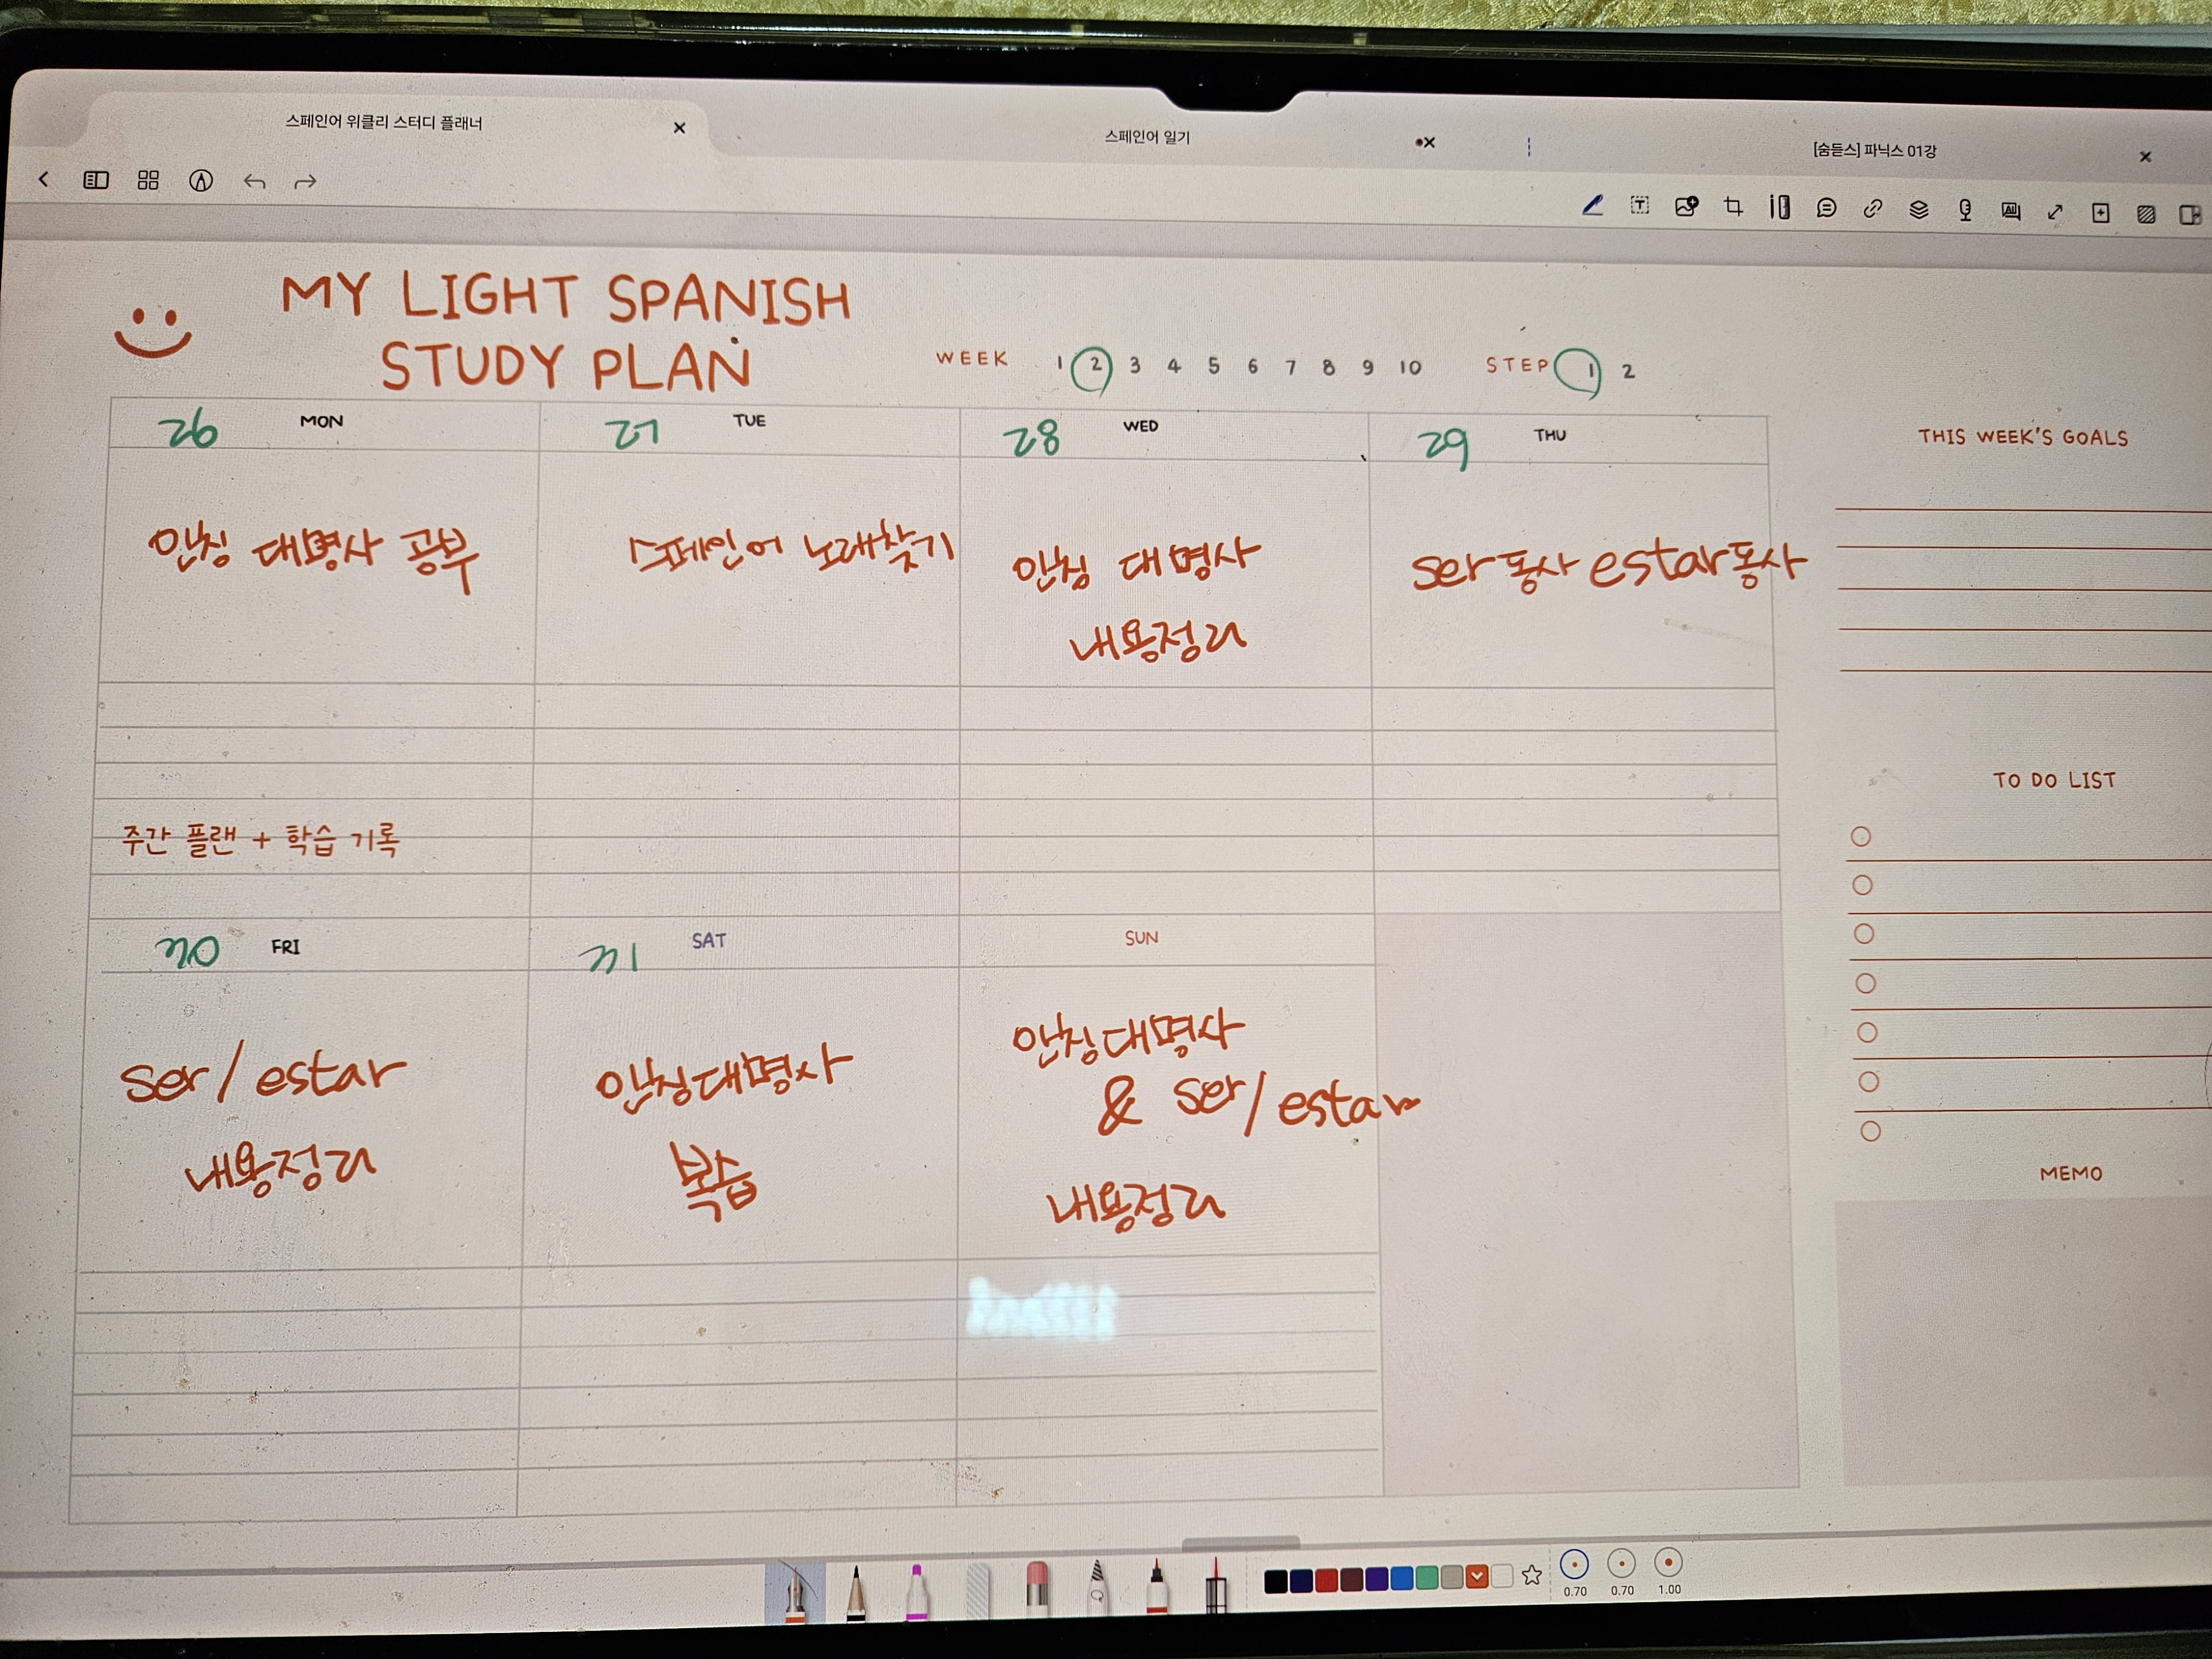 스페인어 위클리 스터디 플래너
스페인어 일기
[숨듣스] 파닉스 01강
MY LIGHT SPANISH
STUDY PLAN
WEEK 1 2 3 4 5 6 7 8 9 10 STEP 1 2
26 MON
27 TUE
28 WED
29 THU
인칭 대명사 공부
스페인어 노래찾기
인칭 대명사
내용정리
ser동사 estar동사
주간 플랜 + 학습 기록
30 FRI
31 SAT
SUN
ser/estar
내용정리
인칭대명사
복습
인칭대명사
& ser/estar
내용정리
THIS WEEK'S GOALS
TO DO LIST
MEMO
0.70 0.70 1.00